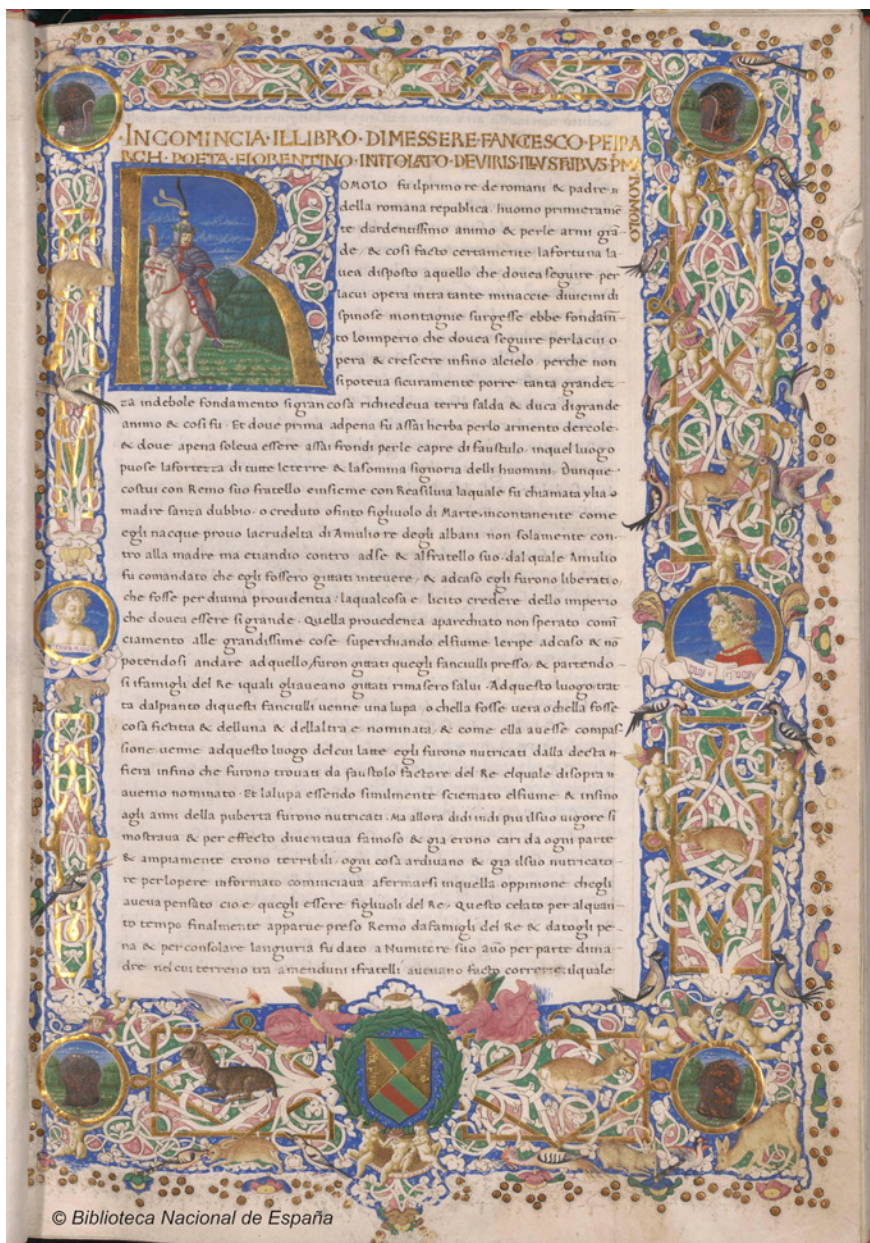 ·INCOMINCIA·ILLIBRO·DIMESSERE·FANCESCO·PETRA
RCH·POETA·FIORENTINO·INTITOLATO·DEVIRIS·ILLVSTRIBVS·PMA
ROMOLO
R OMOLO fu ilprimo re de romani & padre
della romana republica. huomo primieramē
te dardentissimo animo & perle armi grā
de, & cosi facto certamente lafortuna la
uea disposto aquello che douea seguire. per
lacui opera intra tante minaccie diuicini di
spinose montagnie surgesse ebbe fondam̄
to loimperio che douea seguire perlacui o
pera & crescere infino alcielo, perche non
sipoteua sicuramente porre tanta grandez
za indebole fondamento sigran cosa richiedeua terra salda & duca digrande
animo & cosi fu. Et doue prima adpena fu assai herba perlo armento dercole.
& doue apena soleua essere assai frondi perle capre di faustulo, inquel luogo
puose lafortezza di tutte leterre & lasomma signoria delli huomini. Dunque
costui con Remo suo fratello einsieme con Reasiluia laquale fu chiamata ylia
madre sanza dubbio, o creduto ofinto figliuolo di Marte, incontanente come
egli nacque prouo lacrudelta di Amulio re degli albani non solamente con
tro alla madre ma etiandio contro adse & alfratello suo, dal quale Amulio
fu comandato che egli fossero gittati inteuere, & adcaso egli furono liberati o
che fosse per diuina prouidentia, laqualcosa e licito credere dello imperio
che douea essere sigrande. Quella prouedenza aparechiato non sperato comī
ciamento alle grandissime cose superchiando elfiume leripe adcaso & nō
potendosi andare adquello, furon gittati quegli fanciulli presso, & partendo
si ifamigli del Re iquali gliaueano gittati rimasero salui. Adquesto luogo trat
ta dalpianto diquesti fanciulli uenne una lupa, o chella fosse uera o chella fosse
cosa fictitia & delluna & dellaltra e nominata, & come ella auesse compas
sione uenne adquesto luogo delcui latte egli furono nutricati dalla decta
fiera infino che furono trouati da faustolo factore del Re elquale disopra
auemo nominato. Et lalupa essendo similmente sciemato elfiume & insino
agli anni della puberta furono nutricati. Ma allora didi indi piu ilsuo uigore si
mostraua & per effecto diuentaua famoso & gia erono cari da ogni parte
& ampiamente erono terribili, ogni cosa arduano & gia ilsuo nutricato
re perlopere informato cominciaua afermarsi inquella oppinione chegli
aueua pensato cio e quegli essere figliuoli del Re. Questo celato per alquan
to tempo finalmente apparue preso Remo dafamigli del Re & datogli pe
na & per consolare langiuria fu dato a Numitore suo auo per parte dima
dre nel cui terreno tra amenduni ifratelli aueuano facto correre, ilquale
© Biblioteca Nacional de España